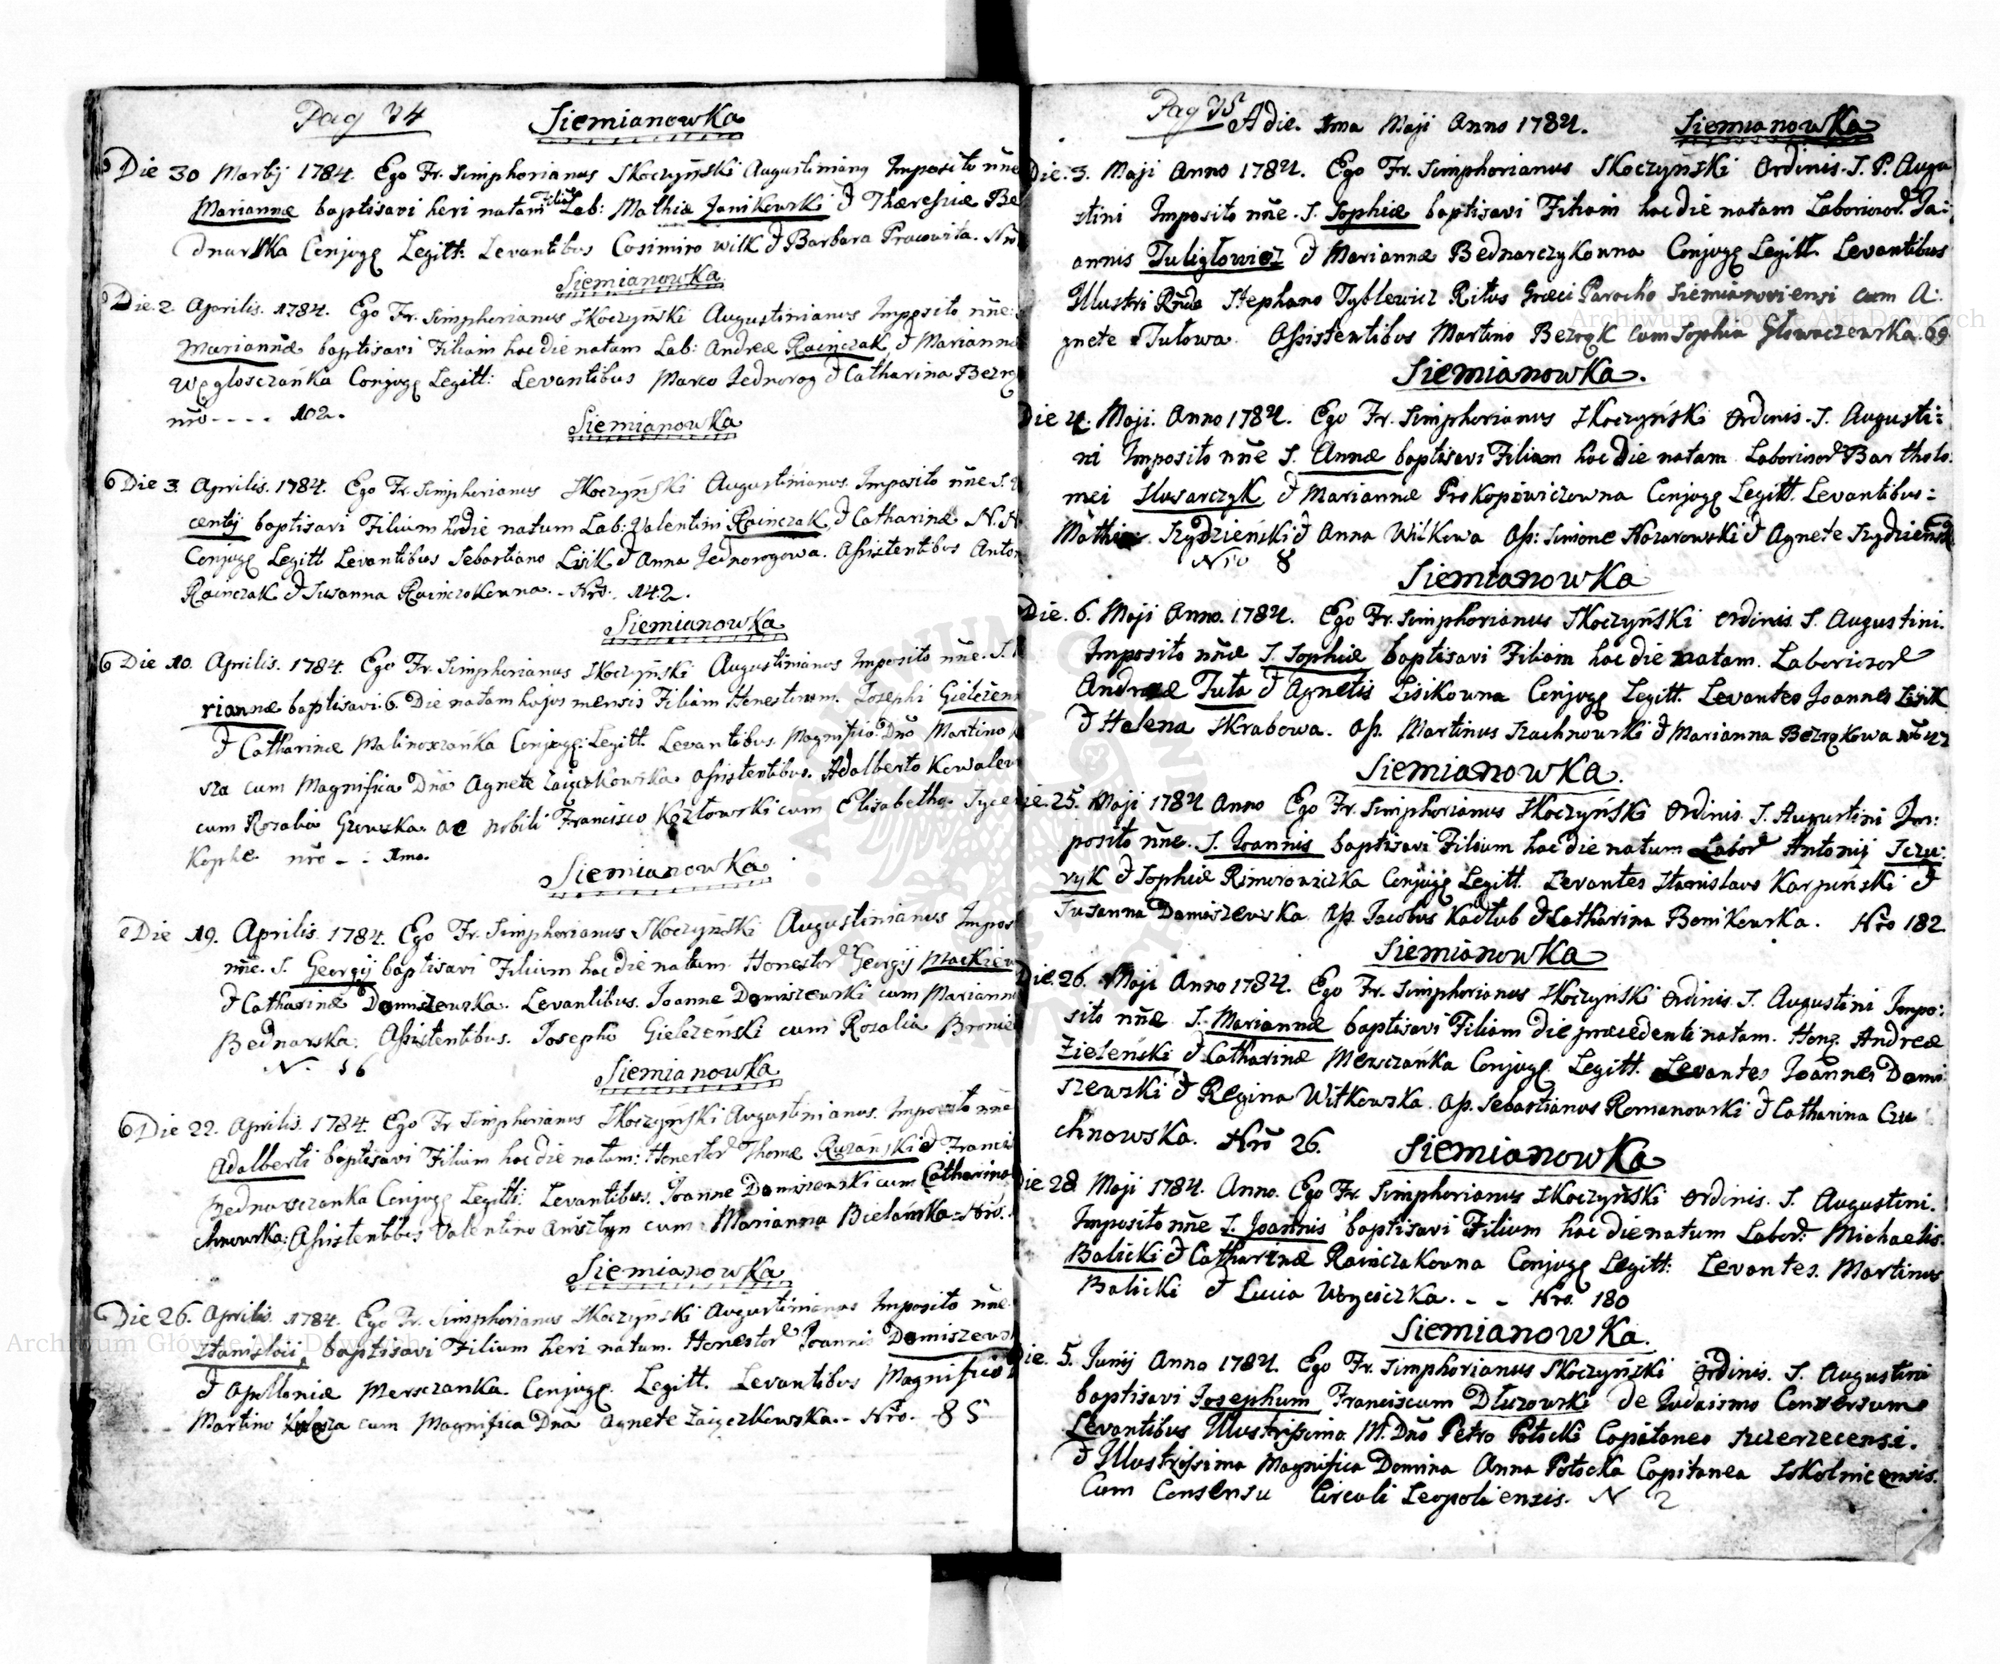 Pag 34 Siemianowka
Die 30 Martij 1784. Ego Fr. Simphorianus Skoczyński Augustinianꝯ Imposito nñe
Mariannæ baptisavi heri natam Filiã Lab: Mathiæ Janikowski & Theresiæ Be
dnarska Conjugꝫ Legitt: Levantibus Cosimiro Wilk & Barbara Pracowita. Nr̃o
Siemianowka
Die 2. Aprilis. 1784. Ego Fr. Simphorianus Skoczyński Augustinianus Imposito nñe:
Mariannæ baptisavi Filiam hac die natam Lab: Andreæ Rainczak & Marianna
Węgloscżańka Conjugꝫ Legitt: Levantibus Marco Jednorog & Catharina Bezrę
nr̃o - - - - 102.
Siemianowka
Die 3. Aprilis. 1784. Ego Fr. Simphorianus Skoczyński Augustinianus. Imposito nñe. S.
centij baptisavi Filium hodie natum Lab: Valentini Rainczak & Catharinæ N. N
Conjugꝫ Legitt Levantibus Sebastiano Lisik & Anna Jednorogowa. Assistentibus Anton
Rainczak & Susanna Rainczokowna. - Nr̃o. 142.
Siemianowka
Die 10. Aprilis. 1784. Ego Fr. Simphorianus Skoczyński Augustinianus Imposito nñe. S.
riannæ baptisavi. 6. Die natam hujus mensis Filiam Honestorum. Josephi Gielezen
& Catharinæ Malinoszańka Conjugꝫ: Legitt. Levantibus. Magnifico. Dño Martino
sza cum Magnifica Dñã Agnete Zaiączkowska. Assistentibus. Adalberto Kowalew
cum Rozalia Gzowska. ac Nobili Francisco Kozłowski cum Elisabetha
Kophe nr̃o - - 1mo.
Siemianowka
Die 19. Aprilis. 1784. Ego Fr. Simphorianus Skoczyński Augustinianus Impos
nñe. S. Georgij baptisavi Filium hac die natum Honestor̃ Georgij Mackiew
& Catharinæ Domiszewska. Levantibus. Joanne Domiszewski cum Marianna
Bednarska. Assistentibus. Josepho Gielezeński cum Rozalia Bronie
N. 56
Siemianowka
Die 22. Aprilis. 1784. Ego Fr Simphorianus Skoczyński Augustinianus. Imposito nñe
Adalberti baptisavi Filium hac die natum: Honestor̃ Thomæ Ruzański & Franci
Bednarczanka Conjugꝫ Legitt: Levantibus. Joanne Domiszewski cum Catharina
chnowska: Assistentibus Valentino Amsztyn cum Marianna Bielańska - Nr̃o.
Siemianowka
Die 26. Aprilis. 1784. Ego Fr. Simphorianus Skoczyński Augustinianus Imposito nñe
Stanislaii baptisavi Filium heri natum. Honestor̃ Joannis Domiszews
& Apolloniæ Mersczanka. Conjugꝫ. Legitt. Levantibus Magnifico
Martino Kolosza cum Magnifica Dña Agnete Zaięczkowska. - Nr̃o. 85
Pag 35 A die. 1ma Maji Anno 1784. Siemianowka
Die. 3. Maji Anno 1784. Ego Fr. Simphorianus Skoczyński Ordinis. S. P. Augu
stini Imposito nñe. S. Sophiæ baptisavi Filiam hac die natam Laborior̃. Jo:
annis Tuligłowicz & Mariannæ Bednarczykowna Conjugꝫ Legitt. Levantibus
Illustri Rñdo Stephano Tyblewicz Ritus Græci Parocho Siemianoviensi cum A:
gnete Tutowa. Assistentibus Martino Bezręk cum Sophia Głowaczewska. 69
Siemianowka.
Die 4. Maji. Anno 1784. Ego Fr. Simphorianus Skoczyński Ordinis. S. Augusti:
ni Imposito nñe S. Annæ baptisavi Filiam hac die natam Laborior̃ Bartholo:
mei Slusarczyk & Mariannæ Prokopowiczowna Conjugꝫ Legitt. Levantibus:
Mathia. Szydzieński & Anna Wilkowa Ass: Simone Nazarowski & Agnete Szydzieńsk
Nro 8
Siemianowka
Die. 6. Maji Anno. 1784. Ego Fr. Simphorianus Skoczyński Ordinis S. Augustini.
Imposito nñe S. Sophiæ baptisavi Filiam hac die natam. Laborior̃
Andreæ Tuta & Agnetis Lisikowna Conjugꝫ Legitt. Levantes Joannes Lisik
& Helena Skrabowa. Ass. Martinus Szachnowski & Marianna Bezrękowa nr̃o 42
Siemianowka.
Die. 25. Maji 1784 Anno Ego Fr. Simphorianus Skoczyński Ordinis. S. Augustini Im:
posito nñe. S. Joannis baptisavi Filium hac die natum Labor̃ Antonij Szu:
ryk & Sophiæ Rimorowiczka Conjugꝫ Legitt. Levantes Stanislaus Karpiński &
Susanna Domiszewska. Ass. Jacobus Kadłub & Catharina Bonikowska. Nr̃o 182.
Siemianowka
Die. 26. Maji Anno 1784. Ego Fr. Simphorianus Skoczyński Ordinis. S. Augustini Impo:
sito nñe S. Mariannæ baptisavi Filiam die præcedenti natam. Honꝫ. Andreæ
Zieleński & Catharinæ Mersczańka Conjugꝫ Legitt. Levantes Joannes Domi
szewski & Regina Witkowska. Ass. Sebastianus Romanowski & Catharina Czu
chnowska. Nr̃o 26. Siemianowka
Die 28 Maji 1784. Anno. Ego Fr. Simphorianus Skoczyński Ordinis. S. Augustini.
Imposito nñe S. Joannis baptisavi Filium hac die natum Labor̃: Michaelis
Balicki & Catharinæ Rainczakowna Conjugꝫ Legitt: Levantes. Martinus
Balicki & Lucia Woycieczka. - - Nr̃o. 180
Siemianowka.
Die. 5. Junij Anno 1784. Ego Fr. Simphorianus Skoczyński Ordinis. S. Augustini
baptisavi Josephum Franciscum Dłuzowski de Judaismo Conversum
Levantibus Illustrissimo M. Dño Petro Potocki Capitaneo Szczerzecensi.
& Illustrissima Magnifica Domina Anna Potocka Capitanea Sokolnicensis.
Cum Consensu Circuli Leopoliensis. N 2
Archiwum Główne Akt Dawnych
Archiwum Główne Akt Dawnych